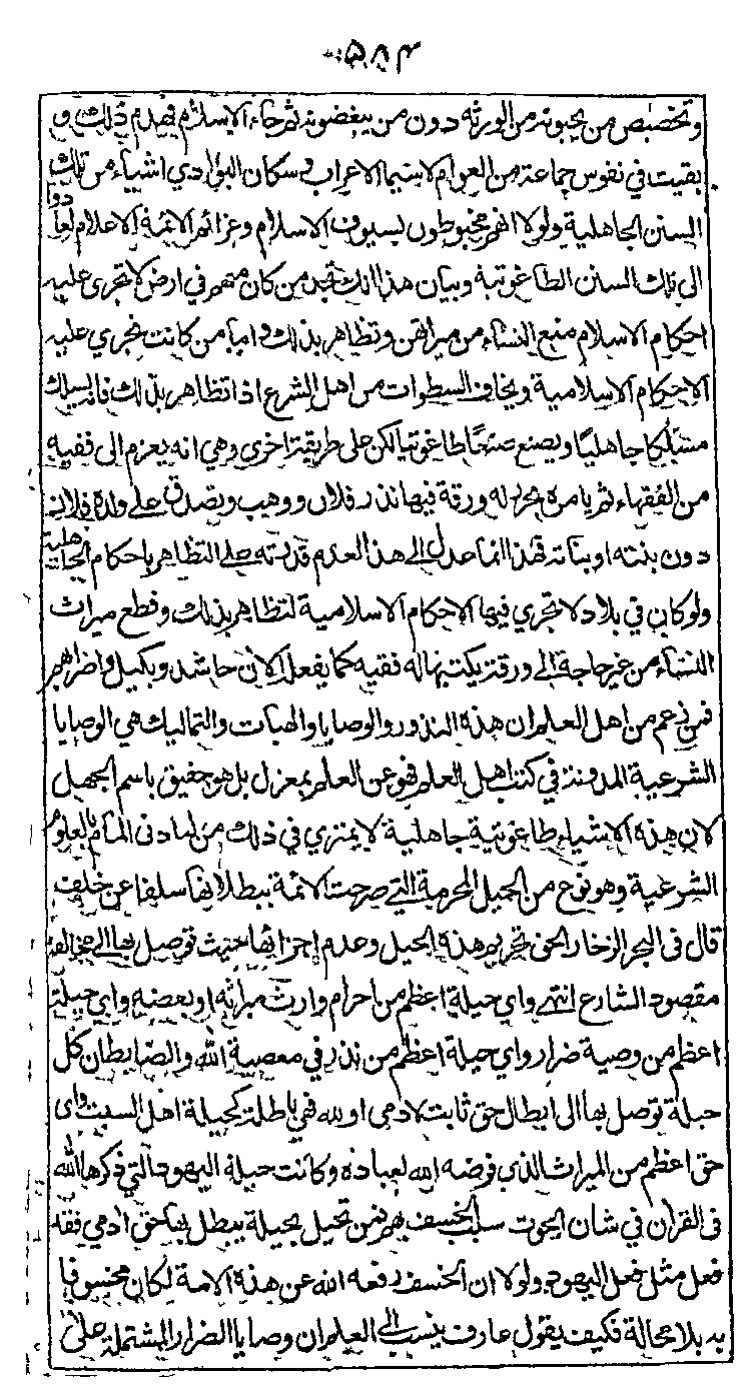 ٥٨٤
وتخصيص من يحبونه من الورثة دون من يبغضونه ثم جاء الاسلام فهدم ذلك و
بقيت في نفوس جماعة من العوام لا سيما الاعراب وسكان البوادي اشياء من تلك
السنن الجاهلية ولولا انهم مخبوطون بسيوف الاسلام وعزائم الائمة الاعلام لعادوا
الى تلك السنن الطاغوتية وبيان هذا انك تجد من كان منهم في ارض لا تجرى عليه
احكام الاسلام منع النساء من ميراثهن وتظاهر بذلك واما من كانت تجري عليه
الاحكام الاسلامية ويخاف السطوات من اهل الشرع اذا تظاهر بذلك فانه يسلك
مسلكا جاهليا ويصنع صنعا طاغوتيا لكن على طريقة اخرى وهي انه يعزم الى فقيه
من الفقهاء ثم يامره يحرر له ورقة فيها نذر فلان ووهب وتصدق على ولده فلان
دون بنته او بناته فهذا انما عدل الى هذا لعدم قدرته على التظاهر باحكام الجاهلية
ولو كان في بلاد لا تجري فيها الاحكام الاسلامية لتظاهر بذلك وقطع ميراث
النساء من غير حاجة الى ورقة يكتبها له فقيه كما يفعل الان حاشد وبكيل واضرابهم
فمن زعم من اهل العلم ان هذه النذور والوصايا والهبات والتماليك هي الوصايا
الشرعية المدونة في كتب اهل العلم فهو عن العلم بمعزل بل هو حقيق باسم الجهل
لان هذه الاشياء طاغوتية جاهلية لا يمتري في ذلك من له ادنى المام بالعلوم
الشرعية وهو نوع من الحيل المحرمة التي صرحت الائمة ببطلانها سلفا عن خلف
قال في البحر الزخار الحق تحريم هذه الحيل وعدم اجزائها حيث توصل بها الى مخالفة
مقصود الشارع انتهى واي حيلة اعظم من احرام وارث ميراثه او بعضه واي حيلة
اعظم من وصية ضرار واي حيلة اعظم من نذر في معصية الله والضابط ان كل
حيلة توصل بها الى ابطال حق ثابت لادمى او لله فهي باطلة كحيلة اهل السبت واى
حق اعظم من الميراث الذي فرضه الله لعباده وكانت حيلة اليهود التي ذكرها الله
فى القران في شان الحوت سبب الخسف بهم فمن تحيل بحيلة يبطل بها حق ادمي فقد
فعل مثل فعل اليهود ولولا ان الخسف رفعه الله عن هذه الامة لكان مخسوفا
به بلا محالة فكيف يقول عارف ينسب الى العلم ان وصايا الضرار المشتملة على